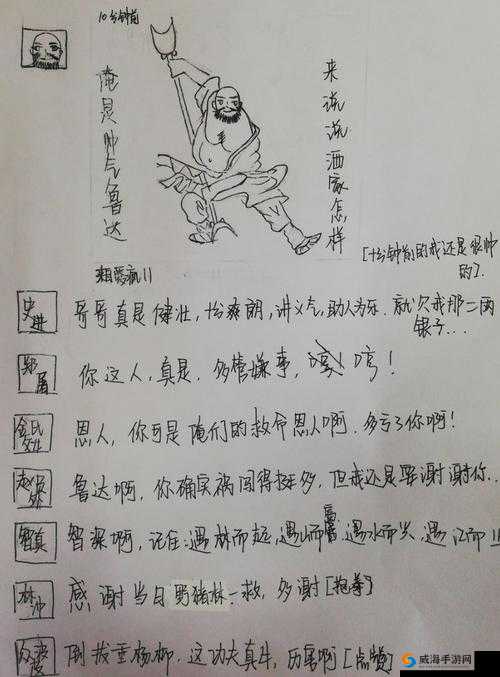 10分钟前
俺是帅气鲁达
来说说洒家怎样
[十分钟前的我还是很帅的].
史进
哥哥真是健壮，十分爽朗，讲义气，助人为乐．就欠我那二两银子...
郑屠
你这人，真是．多管嫌事，哼！哼！
金氏父女
恩人，你可是俺们的救命恩人啊．多亏了你啊！
赵员外
鲁达啊，你确实祸闯得挺多，但我还是要谢谢你..
智真
智深啊，记住:遇林而起，遇山而富，遇水而兴，遇江而止
林冲
感谢当日野猪林一救，多谢[抱拳]
众泼皮
倒拔垂杨柳．这功夫真牛，厉害啊[点赞]
威海手游网